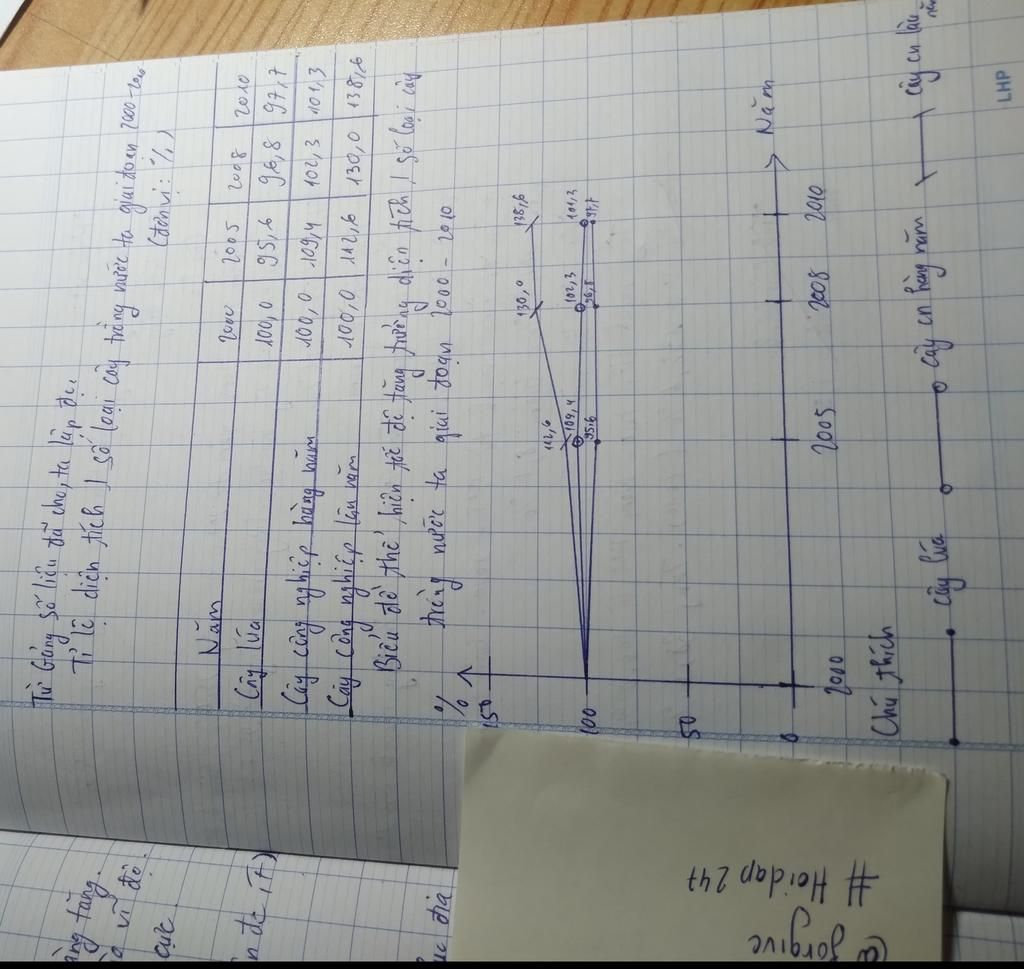 Từ bảng số liệu đã cho, ta lập đc.
Tỉ lệ diện tích 1 số loại cây trồng nước ta giai đoạn 2000-2010
(đơn vị: %)
Năm 2000 2005 2008 2010
Cây lúa 100,0 95,6 96,8 97,7
Cây công nghiệp hàng năm 100,0 109,4 102,3 101,3
Cây công nghiệp lâu năm 100,0 112,6 130,0 138,6
Biểu đồ thể hiện tốc độ tăng trưởng diện tích 1 số loại cây
trồng nước ta giai đoạn 2000 - 2010
%
150
112,6 130,0 138,6
109,4 102,3 101,3
100
95,6 96,8 97,7
50
0
Năm
2000 2005 2008 2010
Chú thích
cây lúa cây cn hàng năm cây cn lâu năm
LHP
àng tăng.
vĩ độ.
cực.
đc (T)
địa
# Hoidap 247
@ gorgive